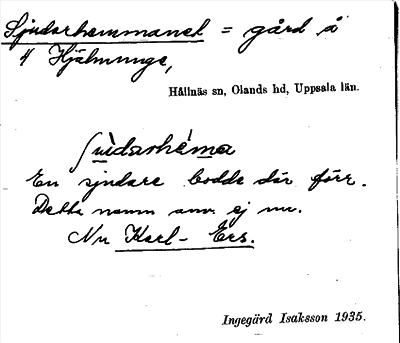 Sjudarhemmanet = gård å
4 Hjälmunge,
Hållnäs sn, Olands hd, Uppsala län.
ʃùdarhéma
En sjudare bodde där förr.
Detta namn anv. ej nu.
Nu Karl-Ers.
Ingegärd Isaksson 1935.